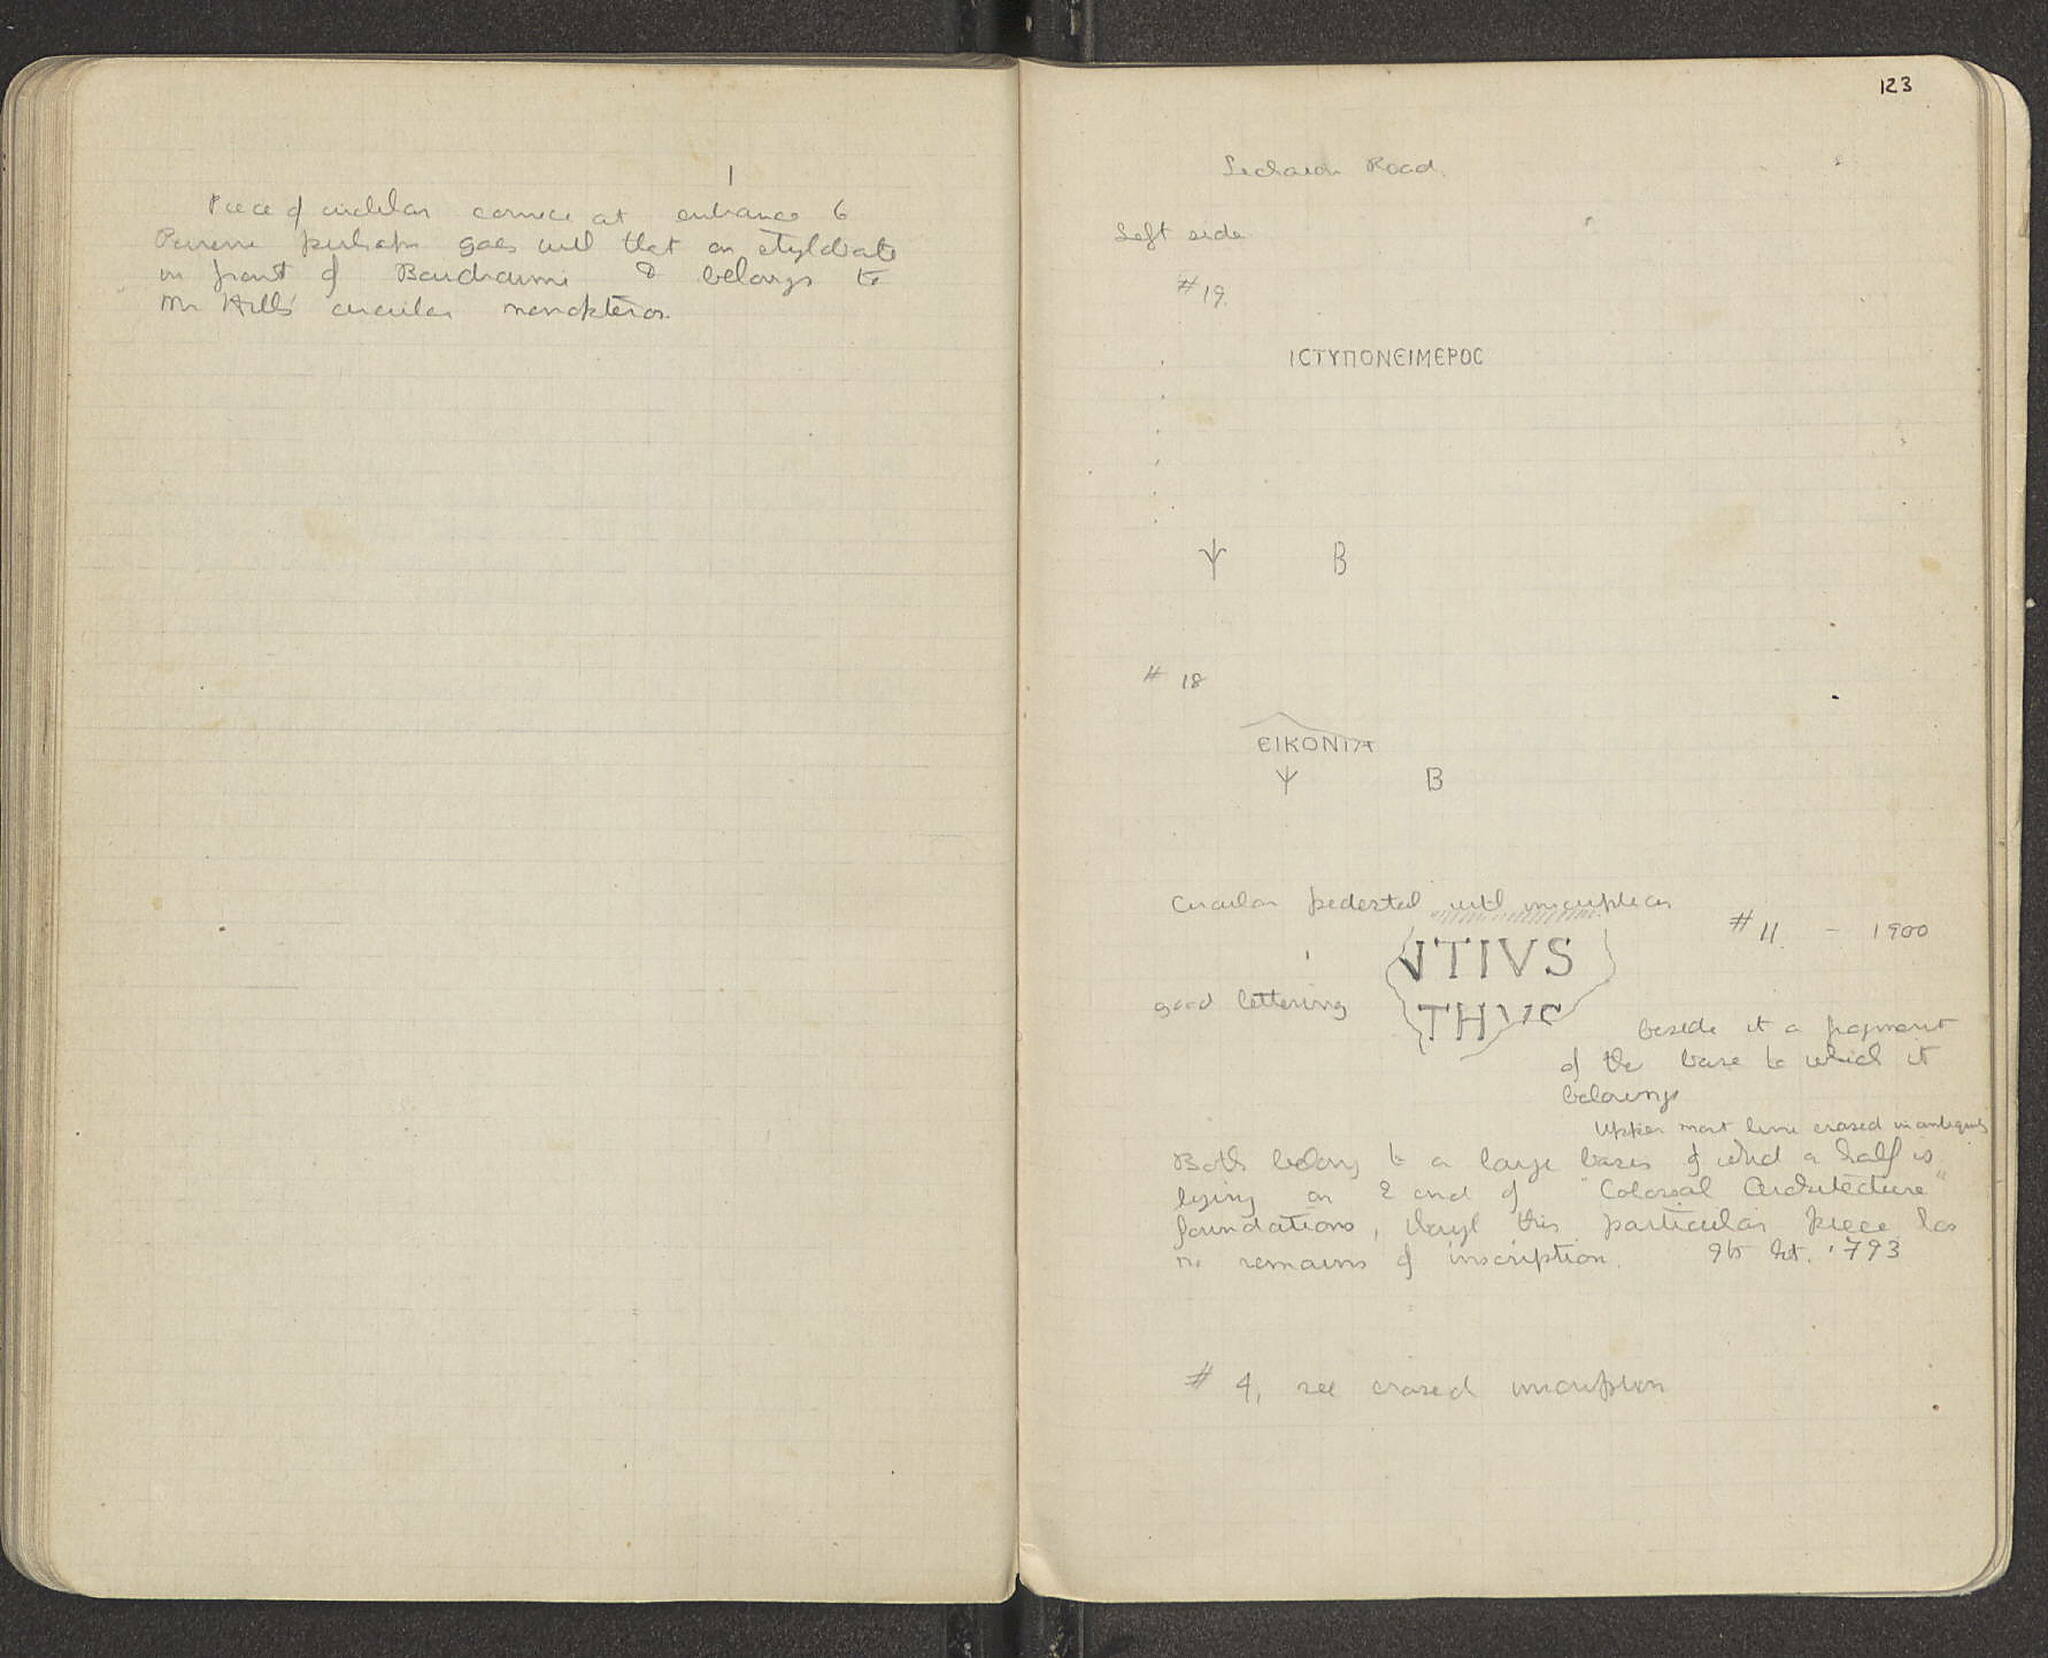 1
Piece of circular cornice at entrance to
Peirene perhaps goes with that on stylobate
in front of Boudroumi & belongs to
Mr Hill's circular monopteros.
123
Lechaion Road.
Left side
#19.
ΙϹΤΥΠΟΝЄΙΜЄΡΟϹ
Ψ Β
# 18
ЄΙΚΟΝΙ
Ψ Β
Circular pedestal with inscription
#11. - 1900
NTIVS
good lettering
THVS
beside it a fragment
of the base to which it
belongs
Upper most line erased in antiquity
Both belong to a large basis of which a half is
lying on E end of "Colossal Architecture"
foundations, this particular piece has
no remains of inscription. Ht. .793
# 4, see erased inscription